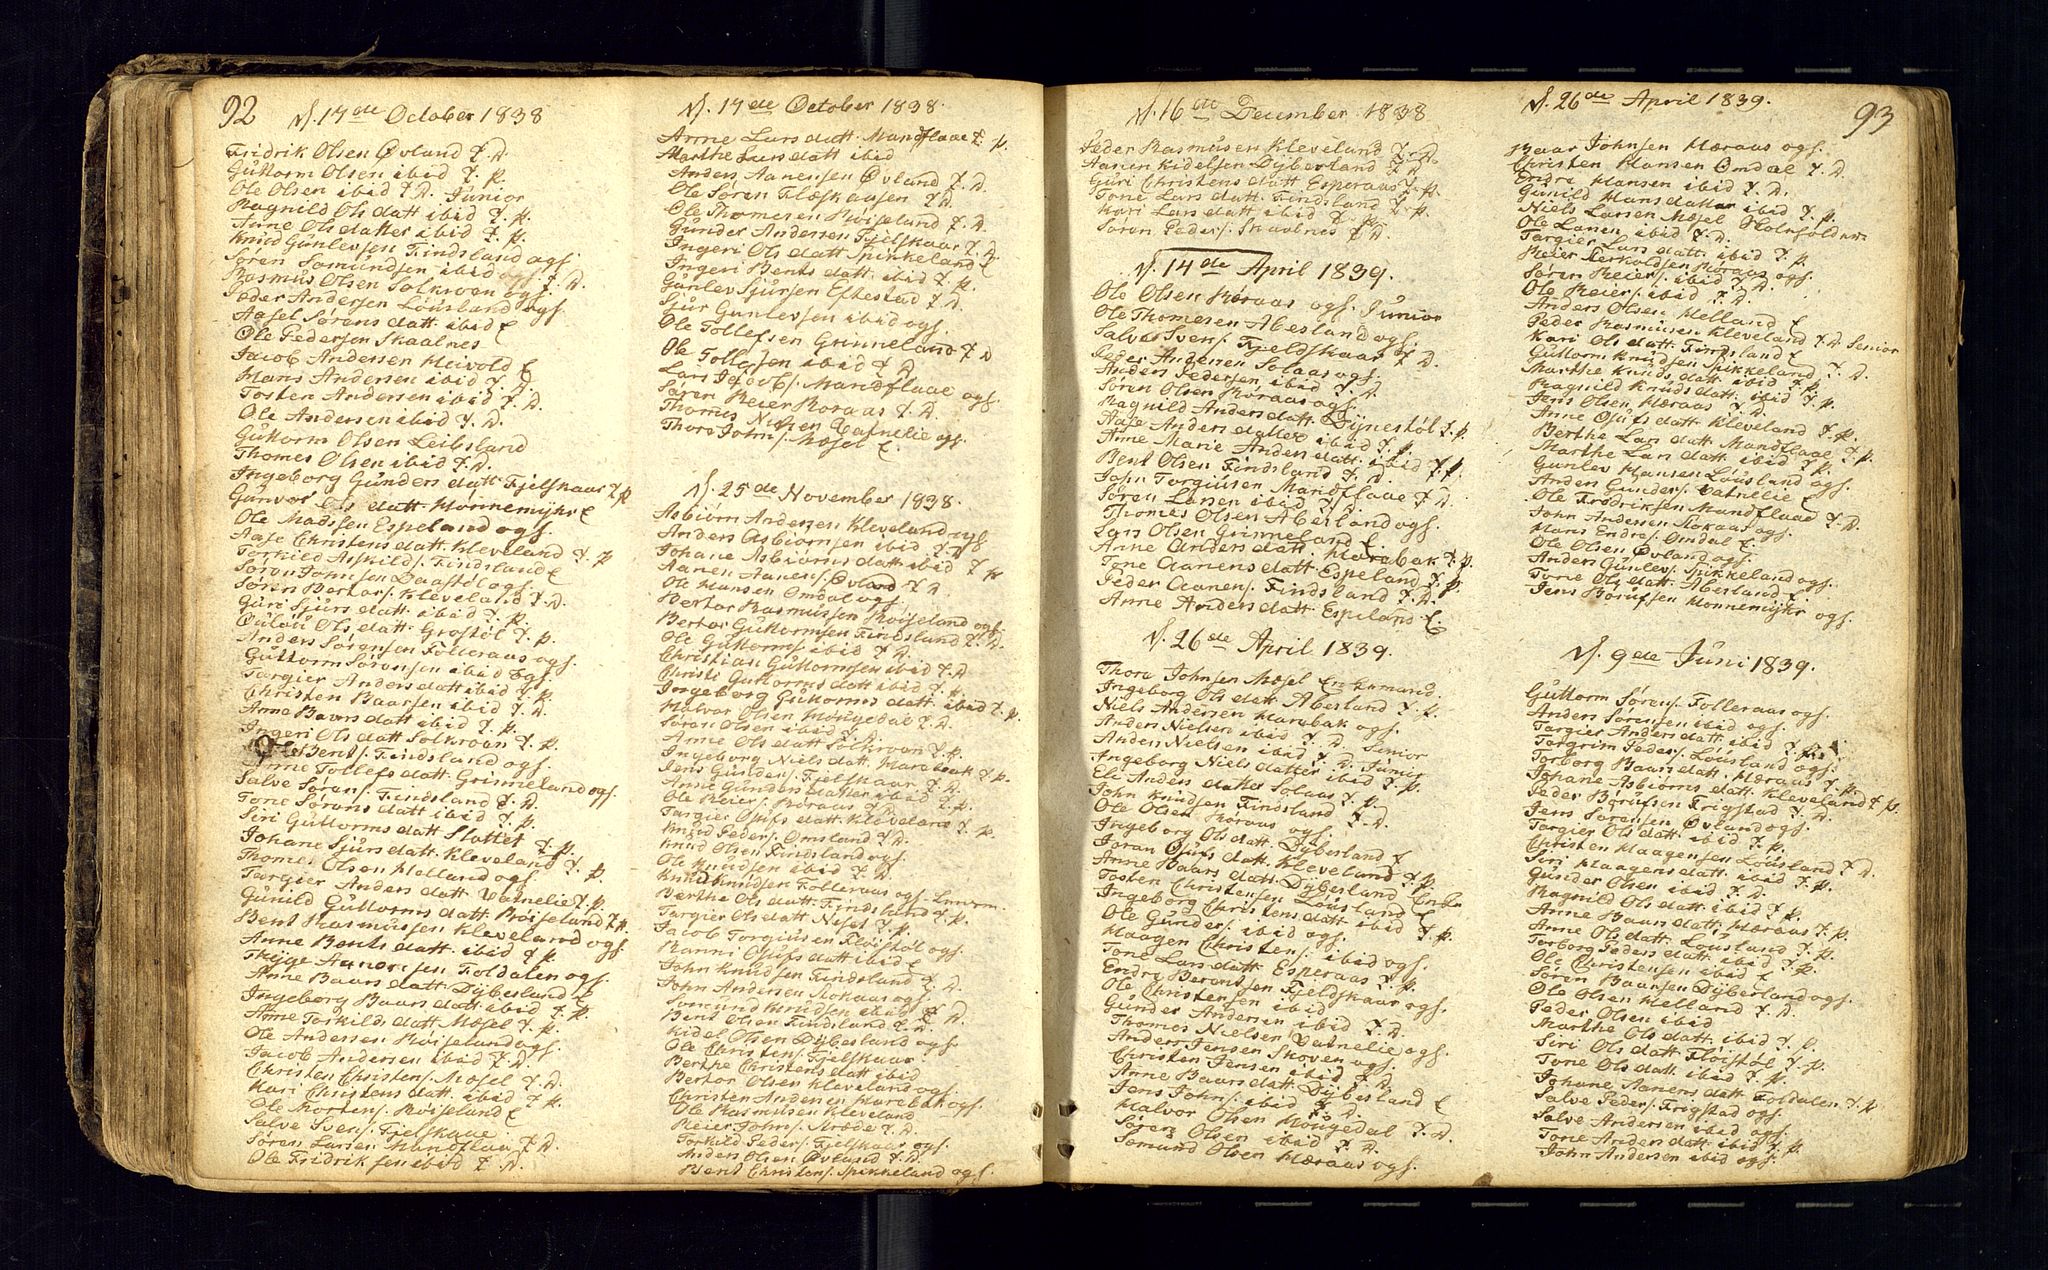 92
d. 14de October 1838
Fridrik Olsen Øvland J. D.
Guttorm Olsen ibid J. p.
Ole Olsen ibid J. D. Junior
Ragnild Ols datt ibid J. p.
Anne Ols datter ibid J. p.
Knud Gunlevsen Findsland ogs.
Søren Samundsen ibid ogs.
Rasmus Olsen Solkroon ogs. J. D.
Peder Andersen Løusland ogs.
Aasel Sørens datt. ibid E
Ole Pedersen Skaalnes
Jacob Andersen Heivold E
Hans Andersen ibid J. D.
Tosten Andersen ibid J. D.
Ole Andersen ibid J. D.
Guttorm Olsen Leibsland
Thomes Olsen ibid J. D.
Ingeborg Gunders datt. Fjelskaar J. p
Gunvor Ols datt. Honnemyhr E
Ole Madssen Espeland ogs.
Aase Christens datt. Kleveland J. p
Torkild Askilds. Findsland E
Søren Johnsen Daastøl ogs.
Søren Bertors. Kleveland J. D.
Guri Sjurs datt. ibid J. p.
Ols datt. Grostøl J. p.
Anders Sørensen Folleraas ogs.
Guttorm Sørensen ibid ogs.
Targier Anders datt ibid J. p.
Christen Baarsen ibid J. D.
Anne Baars datt ibid J. p.
Ingeri Ols datt Solkroon J. p.
Ole Bents. Findsland ogs.
Anne Tollefs datt. Grimeland ogs.
Salve Sørens. Findsland J. D.
Tone Sørens datt ibid J. p.
Siri Guttorms datt Slottet J. p.
Johane Sjurs datt. Kleveland J. p.
Thomes Olsen Helland ogs.
Targier Anders datt Vatnelie J. p.
Gunild Guttorms datt Røiseland J. p.
Bent Rasmussen Kleveland ogs.
Anne Bents datt. ibid J. p.
Aanonsen Foldalen ogs.
Anne Baars datt. Dybesland E
Ingeborg Baars datt. ibid J. p.
Anne Torkilds datt Mosel J. p.
Ole Andersen Røiseland ogs.
Jacob Andersen ibid J. D.
Christen Christens. Mosel J. D.
Kari Christens datt. ibid J. p.
Ole Mortens. Røiseland E
Salve Svens. Fjelskaae
Søren Larsen Mandflaa J. D.
Ole Fridriksen ibid J. D.
d. 14de October 1838.
Anne Lars datt. Mandflaae J. p.
Marthe Lars datt ibid
Anders Aanensen Øvland J. D.
Ole Søren Flæskaasen J. D.
Ole Thomesen Røiseland J. D.
Gunder Andersen Fjelskaar J. D.
Ingeri Ols datt Spikkeland E
Ingeri Bents datt. ibid J. p.
Gunlev Sjursen Eftestad J. D.
Sjur Gunlevsen ibid ogs.
Ole Tollefsen Grimeland J. D
Ole Tollefsen ibid J. D.
Lars Jacobs. Mandflaae ogs.
Søren Reier Roraas J. D.
Thomes Nielsen Vatnelie ogs.
Thore Johns. Mosel E.
d. 25de November 1838.
Asbiørn Andersen Kleveland ogs
Anders Asbiørnsen ibid J. D
Johane Asbiørns datt ibid J. p
Aanen Aanens. Øvland J. D
Ole Hansen Omdal ogs.
Bertor Rasmussen Røiseland ogs
Bertor Guttormsen Findsland J. D.
Ole Guttorms. ibid J. D.
Christian Guttormsen ibid J. D.
Christi Guttorms datt ibid J. p.
Ingeborg Guttorms datt. ibid J. p.
Halvor Olsen Mougedal J. D.
Søren Olsen ibid J. D.
Anne Ols datt Solkroon J. p.
Ingeborg Niels datt Harebak J. p.
Jens Gunders. Fjelskaar J. D.
Anne Gunders datter ibid J. p.
Ole Reiers. Røraas J. D.
Targier Osufs datt Kleveland J. p.
Knud Peders. Omsland J. D.
Knud Olsen Findsland ogs.
Ole Knudsen ibid J. D.
Knud Knudsen Folleraas ogs.
Berthe Ols datt. Findsland J. p.
Targier Ols datt Neset J. p.
Jacob Torgiusen Fløistøl ogs.
Ranni Osufs datt ibid E
John Knudsen Findsland J. D.
John Andersen Røraas ogs.
Somund Knudsen ibid J. D.
Bent Olsen Findsland E
Kidel Olsen Dyblesland ogs.
Ole Christens. Fjelskaar
Berthe Christens datt ibid
Bertor Olsen Kleveland ogs.
Christen Andersen Harebak ogs.
Ole Rasmusen Kleveland
Reier Johns. Møede J. D.
Torkild Peders. Fjelskaar ogs.
Anders Olsen Øvland J. D.
Bent Christens. Spikkeland ogs.
d. 16de December 1838
Peder Rasmusen Kleveland J. D.
Aanen Kidelsen Dybesland J. D
Guri Christens datt Esperaas J. p.
Tone Lars datt. Findsland J. p.
Kari Lars datt ibid J. p.
Søren Peders. Skaalnes J. D.
d. 14de April 1839.
Ole Olsen Røraas ogs. Junior
Ole Thomesen Abesland ogs.
Salve Svens. Fjeldskaar J. D.
Peder Andersen Solaas ogs.
Anders Pedersen ibid J. D.
Søren Olsen Røraas ogs.
Ragnild Anders datt. Dynestøl J. p.
Aase Anders datter ibid J. p.
Anne Marie Anders datt. ibid J. p.
Bent Olsen Findsland J. D.
John Torgiusen Mandflaae J. D.
Søren Larsen ibid J. D.
Thomes Olsen Abesland ogs.
Lars Olsen Grimeland E.
Anne Anders datt. Harebak J. p.
Tone Aanens datt. Espeland J. p.
Peder Aanens. Findsland J. D.
Anne Anders datt. Espeland E.
d. 26de April 1839.
Thore Johnsen Mosel Enkemand.
Ingeborg Ols datt Abesland J. p.
Niels Andersen Harebak ogs.
Anders Nielsen ibid J. D. Senior
Anders Nielsen ibid J. D. Junior
Ingeborg Niels datter ibid J. p.
Eli Anders datter Solaas J. p.
John Knudsen Findsland J. D.
Ole Olsen Røraas ogs.
Ingeborg Ols datt. Dybesland E
Joran Osufs datt. Kleveland J. p.
Anne Baars datt. Dybesland Enke
Tosten Christensen Løusland E
Ingeborg Christens datt ibid J. p.
Ole Gunders. ibid ogs.
Haagen Christens. ibid ogs.
Tone Lars datt Esperaas J. p.
Endre Berentsen Fjeldskaar ogs.
Ole Christensen ibid J. D.
Gunder Andersen ibid J. D.
Thomes Nielsen Vatnelie ogs.
Anders Jensen Skoven ogs.
Christen Jensen ibid J. D.
Anne Baars datt. Dybesland E
Jens Johns. ibid J. D.
Halvor Olsen Mougedal J. D.
Søren Olsen ibid J. D.
Somund Olsen Høraas ogs.
d. 26de April 1839.
93
Baar Johnsen Høraas ogs.
Christen Hansen Omdal J. D.
Endre Hansen ibid J. D.
Gunild Hans datter ibid J. p.
Niels Larsen Mosel Skoleholder
Ole Larsen ibid J. D.
Targier Lars datt. ibid J. p.
Reier Terkoldsen Røraas ogs.
Søren Reiers. ibid J. D.
Ole Reiers. ibid J. D.
Anders Olsen Helland E
Peder Rasmusen Kleveland J. D. Senior
Kari Ols datt. Findsland E
Guttorm Knudsen Spikkeland J. D.
Marthe Knuds datt ibid J. p.
Ragnild Knuds datt. ibid J. p.
Jens Olsen Høraas J. D.
Anne Osufs datt Kleveland J. p.
Berthe Lars datt Mandflaae J. p.
Marthe Lars datt. ibid J. p.
Gunlev Hansen Løusland ogs.
Anders Gunders. Vatnelie E
Ole Fredriksen Mandflaae J. D.
John Andersen Røraas ogs.
Hans Endres. Omdal E
Ole Olsen Øvland ogs.
Anders Gunlevs. Spikkeland ogs.
Torne Ols datt. Abesland E
Jens Børufsen Honnemyhr ogs.
d. 9de Juni 1839.
Guttorm Sørens. Folleraas ogs.
Anders Sørensen ibid ogs.
Targier Anders datt ibid J. p.
Targrim Peders. Løusland ogs.
Torborg Baars datt. Høraas J. p.
Johane Asbiørns datt. Kleveland J. p.
Peder Børufsen Frigstad J. D.
Jens Sørensen Øvland ogs.
Targier Ols datt ibid J. p.
Christen Haagensen Løusland J. D.
Siri Haagens datt. ibid J. p.
Gunder Olsen ibid J. D.
Ragnild Ols datt ibid J. p.
Anne Baars datt Høraas J. p.
Anne Ols datt. Løusland J. p.
Torborg Peders datt ibid J. p.
Ole Christensen ibid E
Søren Baarsen Dybesland ogs.
Ole Olsen Helland J. D.
Peder Olsen ibid
Marthe Ols datt. ibid J. p.
Siri Ols datt Fløistøl J. p.
Tone Ols datt ibid J. p.
Johane Aanens datt Foldalen J. p
Salve Peders. Frigstad ogs.
Salve Andersen ibid ogs.
Tone Anders datt ibid J. p.
John Andersen ibid ogs.